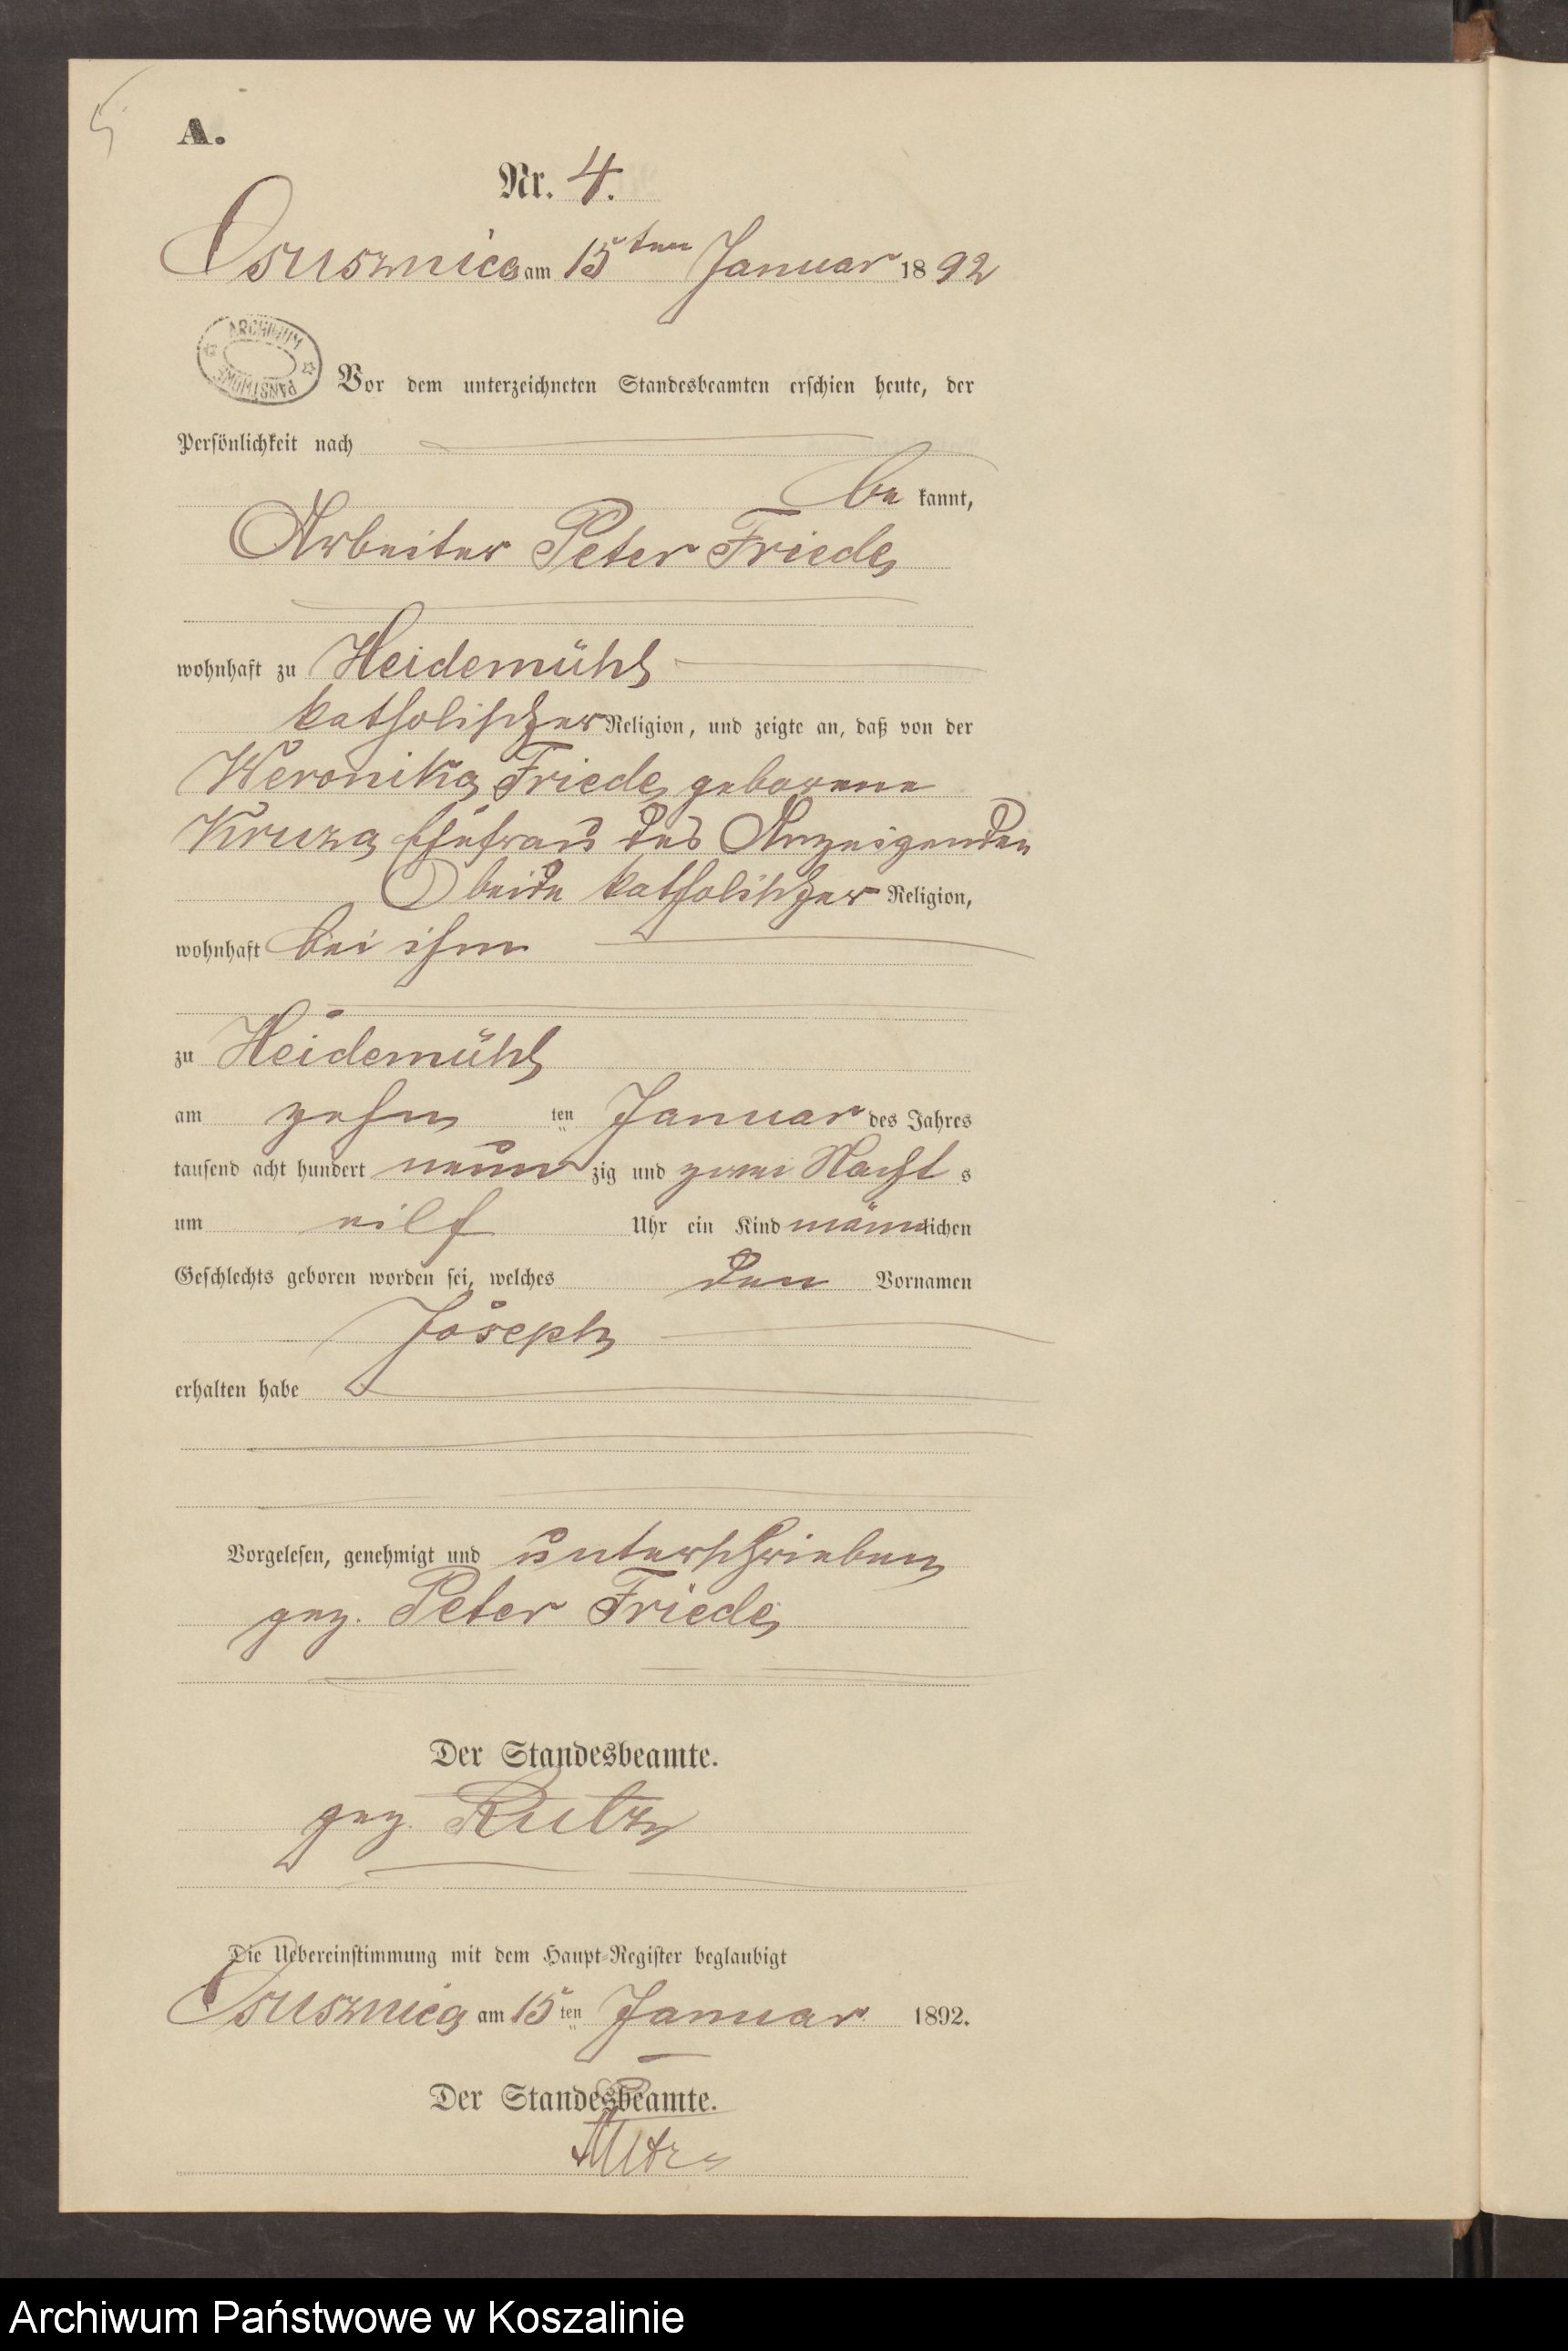 5
A.
Nr. 4.
Osusznica am 15ten Januar 1892
ARCHIWUM PAŃSTWOWE
Vor dem unterzeichneten Standesbeamten erschien heute, der
Persönlichkeit nach
be kannt,
Arbeiter Peter Friede
wohnhaft zu Heidemühl
katholischer Religion, und zeigte an, daß von der
Weronika Friede geborene
Kruza Ehefrau des Anzeigenden
beide katholischer Religion,
wohnhaft bei ihm
zu Heidemühl
am zehn ten Januar des Jahres
tausend acht hundert neun zig und zwei Nacht s
um eilf Uhr ein Kind männlichen
Geschlechts geboren worden sei, welches den Vornamen
Joseph
erhalten habe
Vorgelesen, genehmigt und unterschrieben
gez. Peter Friede
Der Standesbeamte.
gez. Rutz
Die Uebereinstimmung mit dem Haupt-Register beglaubigt
Osusznica am 15 ten Januar 1892.
Der Standesbeamte.
Rutz
Archiwum Państwowe w Koszalinie